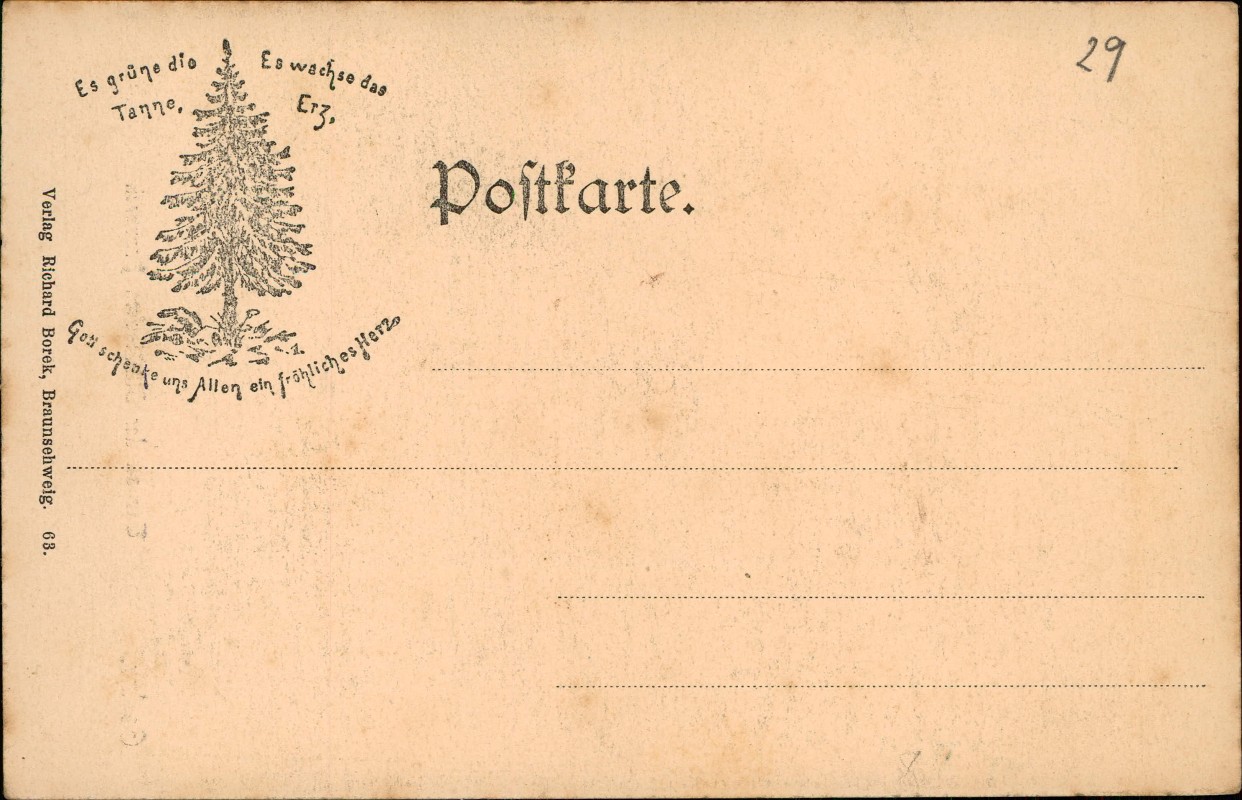 Es grüne die
Tanne,
Es wachse das
Erz,
Gott schenke uns Allen ein fröhliches Herz
Postkarte.
29
Verlag Richard Borek, Braunschweig. 63.